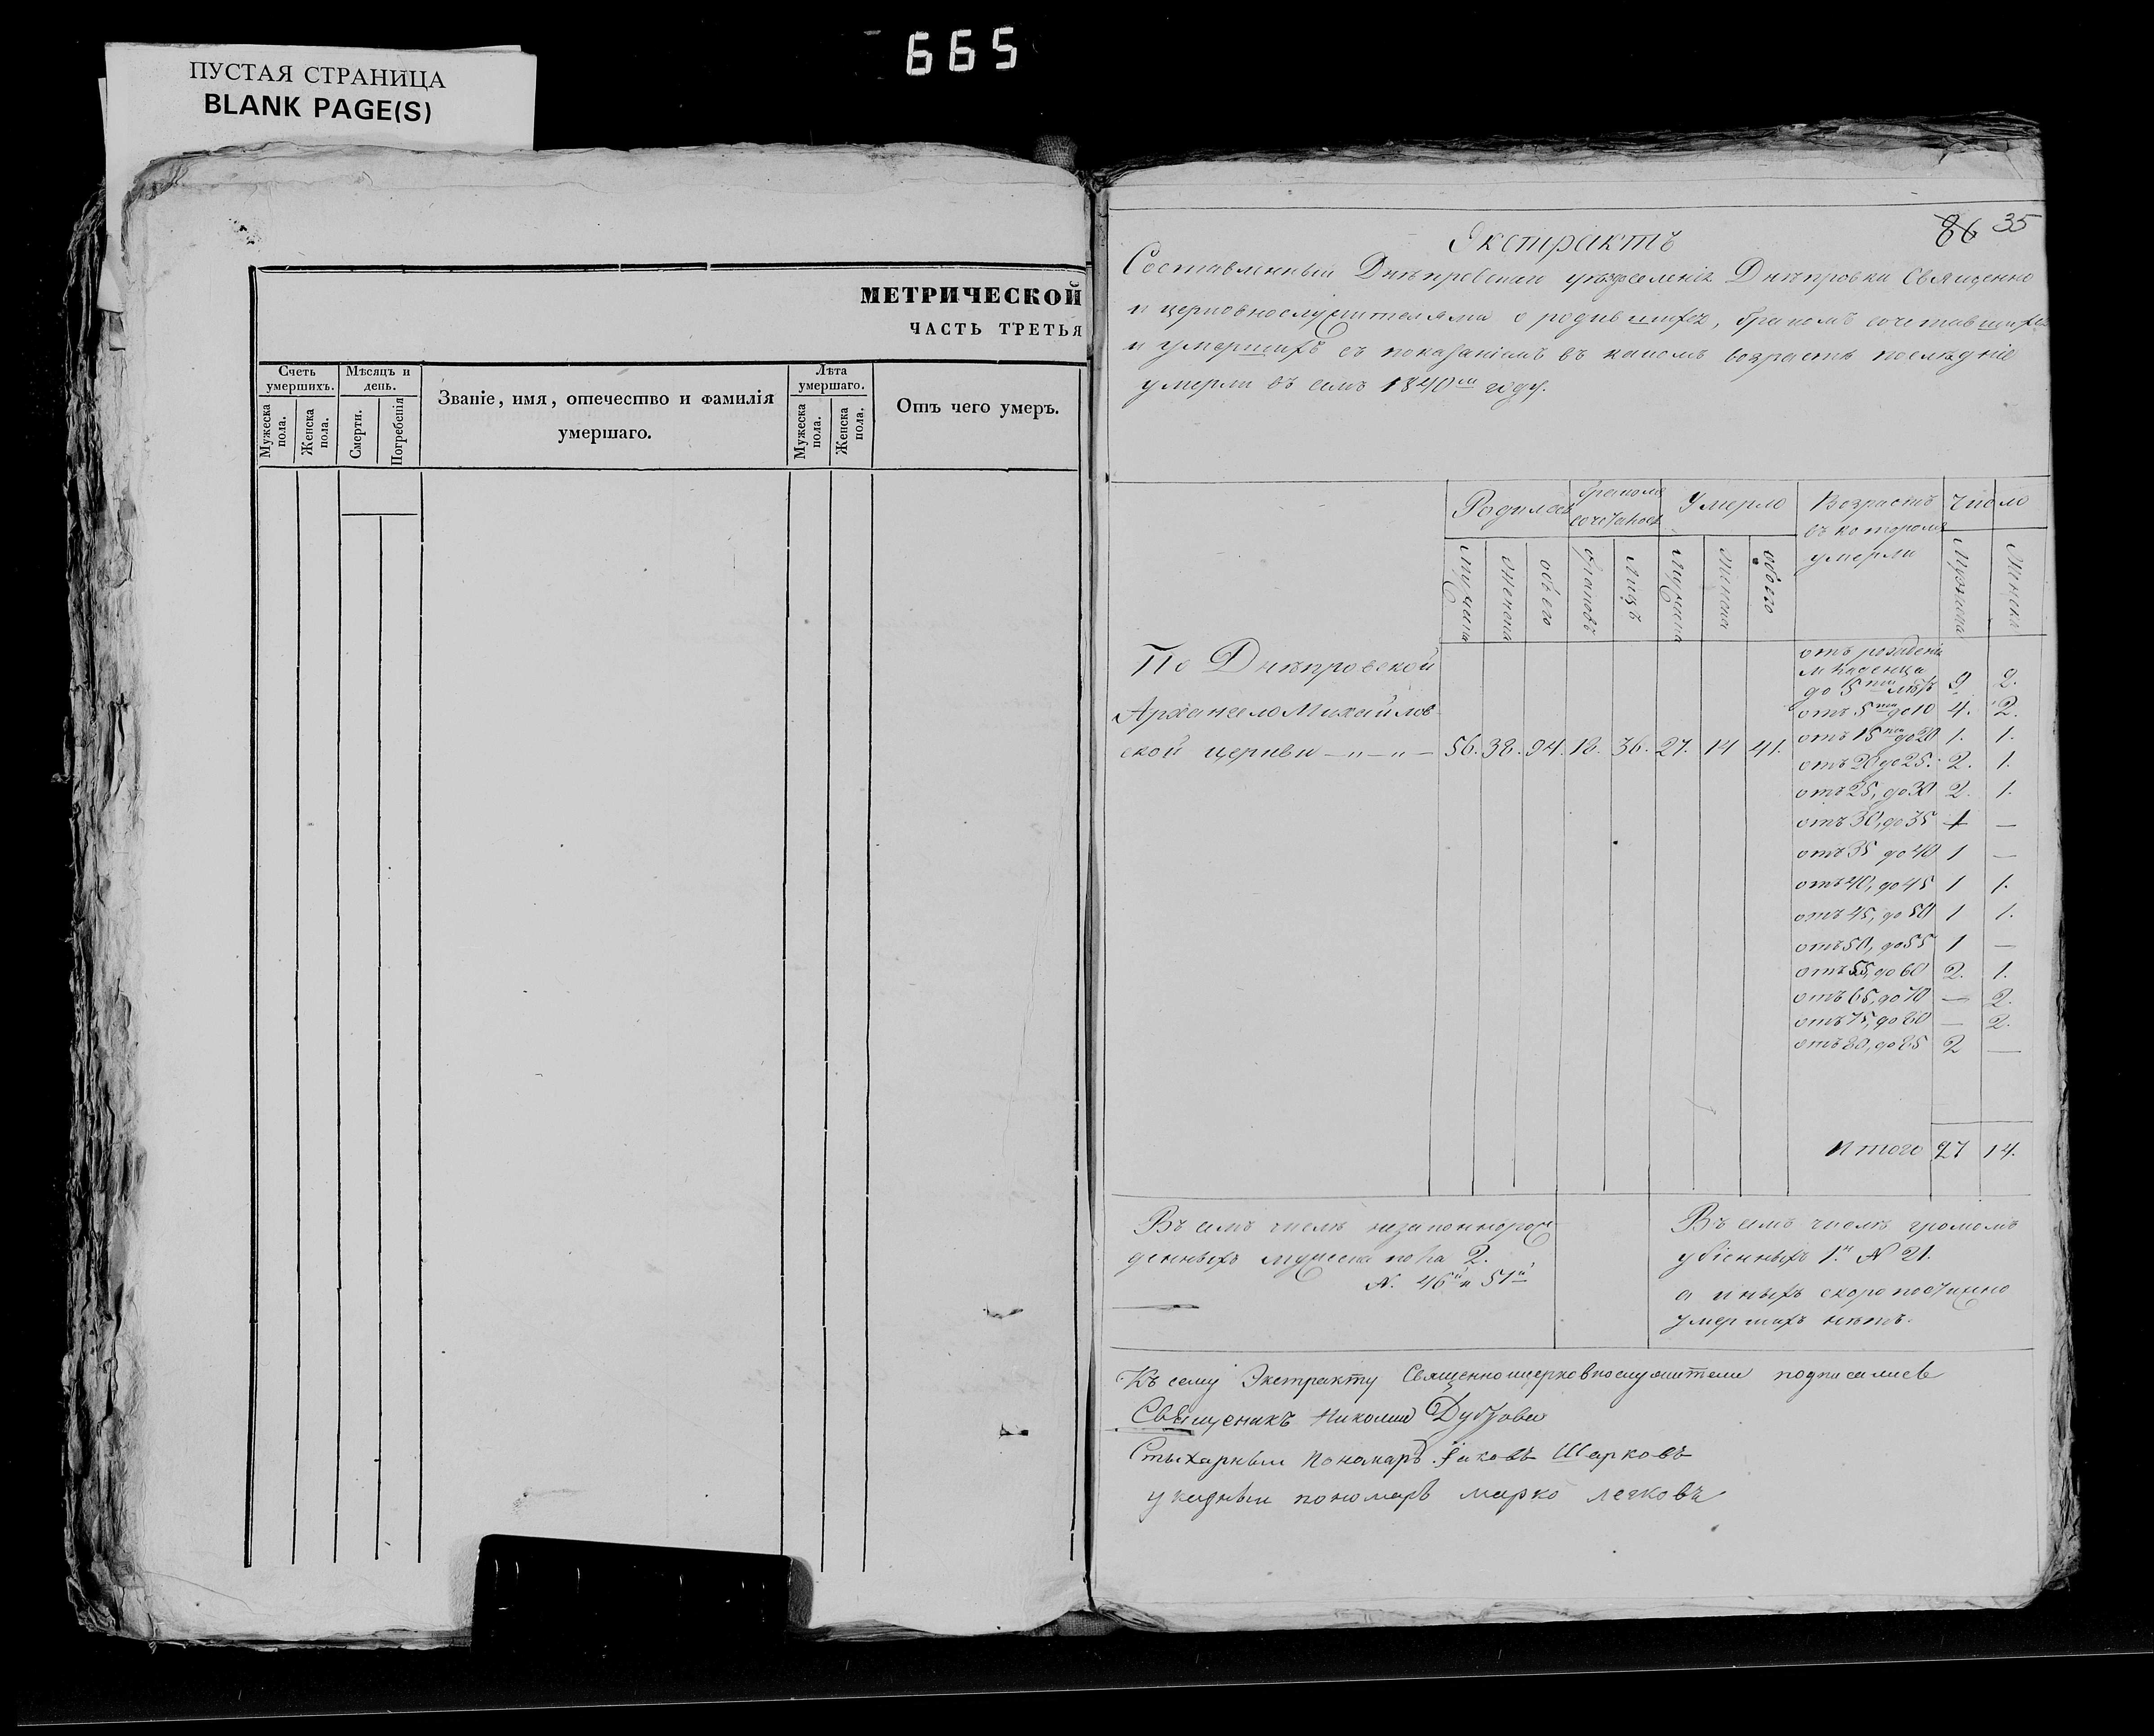 665
ПУСТАЯ СТРАНИЦА
BLANK PAGE(S)
МЕТРИЧЕСКОЙ
ЧАСТЬ ТРЕТЬЯ
Счетъ умершихъ.
Мужеска пола.
Женска пола.
Мѣсяцъ и день.
Смерти.
Погребенія
Званіе, имя, отечество и фамилія
умершаго.
Лѣта умершаго.
Мужеска пола.
Женска пола.
Отъ чего умеръ.
86 35
Экстрактъ
Составленный Днѣпровскаго уѣзда селенія Днѣпровки Священно
и церковнослужителями о родившихся, бракомъ сочетавшихся
и умершихъ съ показаніемъ въ какомъ возрастѣ послѣдніе
умерли въ семъ 1840м году.
Родилось бракомъ сочеталось Умерло Возрастъ въ которомъ умерли Число
мужеска женска обоего браковъ лицъ мужеска женска обоего Мужеска Женска
По Днѣпровской
Архангело Михайлов
ской церкви — „ — „ — 56. 38. 94. 18. 36. 27. 14 41.
отъ рожденія
младенца
до 5ти лѣтъ 9 2.
отъ 5ти до 10 4. 2.
отъ 15ти до 20 1. 1.
отъ 20 до 25. 2. 1.
отъ 25, до 30 2. 1.
отъ 30, до 35 1 —
отъ 35 до 40 1 —
отъ 40, до 45 1 1.
отъ 45, до 50 1 1.
отъ 50, до 55 1 —
отъ 55, до 60 2. 1.
отъ 65, до 70 — 2.
отъ 75, до 80 — 2.
отъ 80, до 85 2 —
Итого 27 14.
Въ семъ числѣ незаконнорож
денныхъ мужеска пола 2.
N. 46й и 51й
Въ семъ числѣ громомъ
убіенныхъ 1.й N 21.
а иныхъ скоропостижно
умершихъ нѣтъ.
Къ сему Экстракту Священноицерковнослужители подписались
Священикъ Николай
Стыхарный Пономарь Іаковъ Шарковъ
указный пономарь марко легковъ